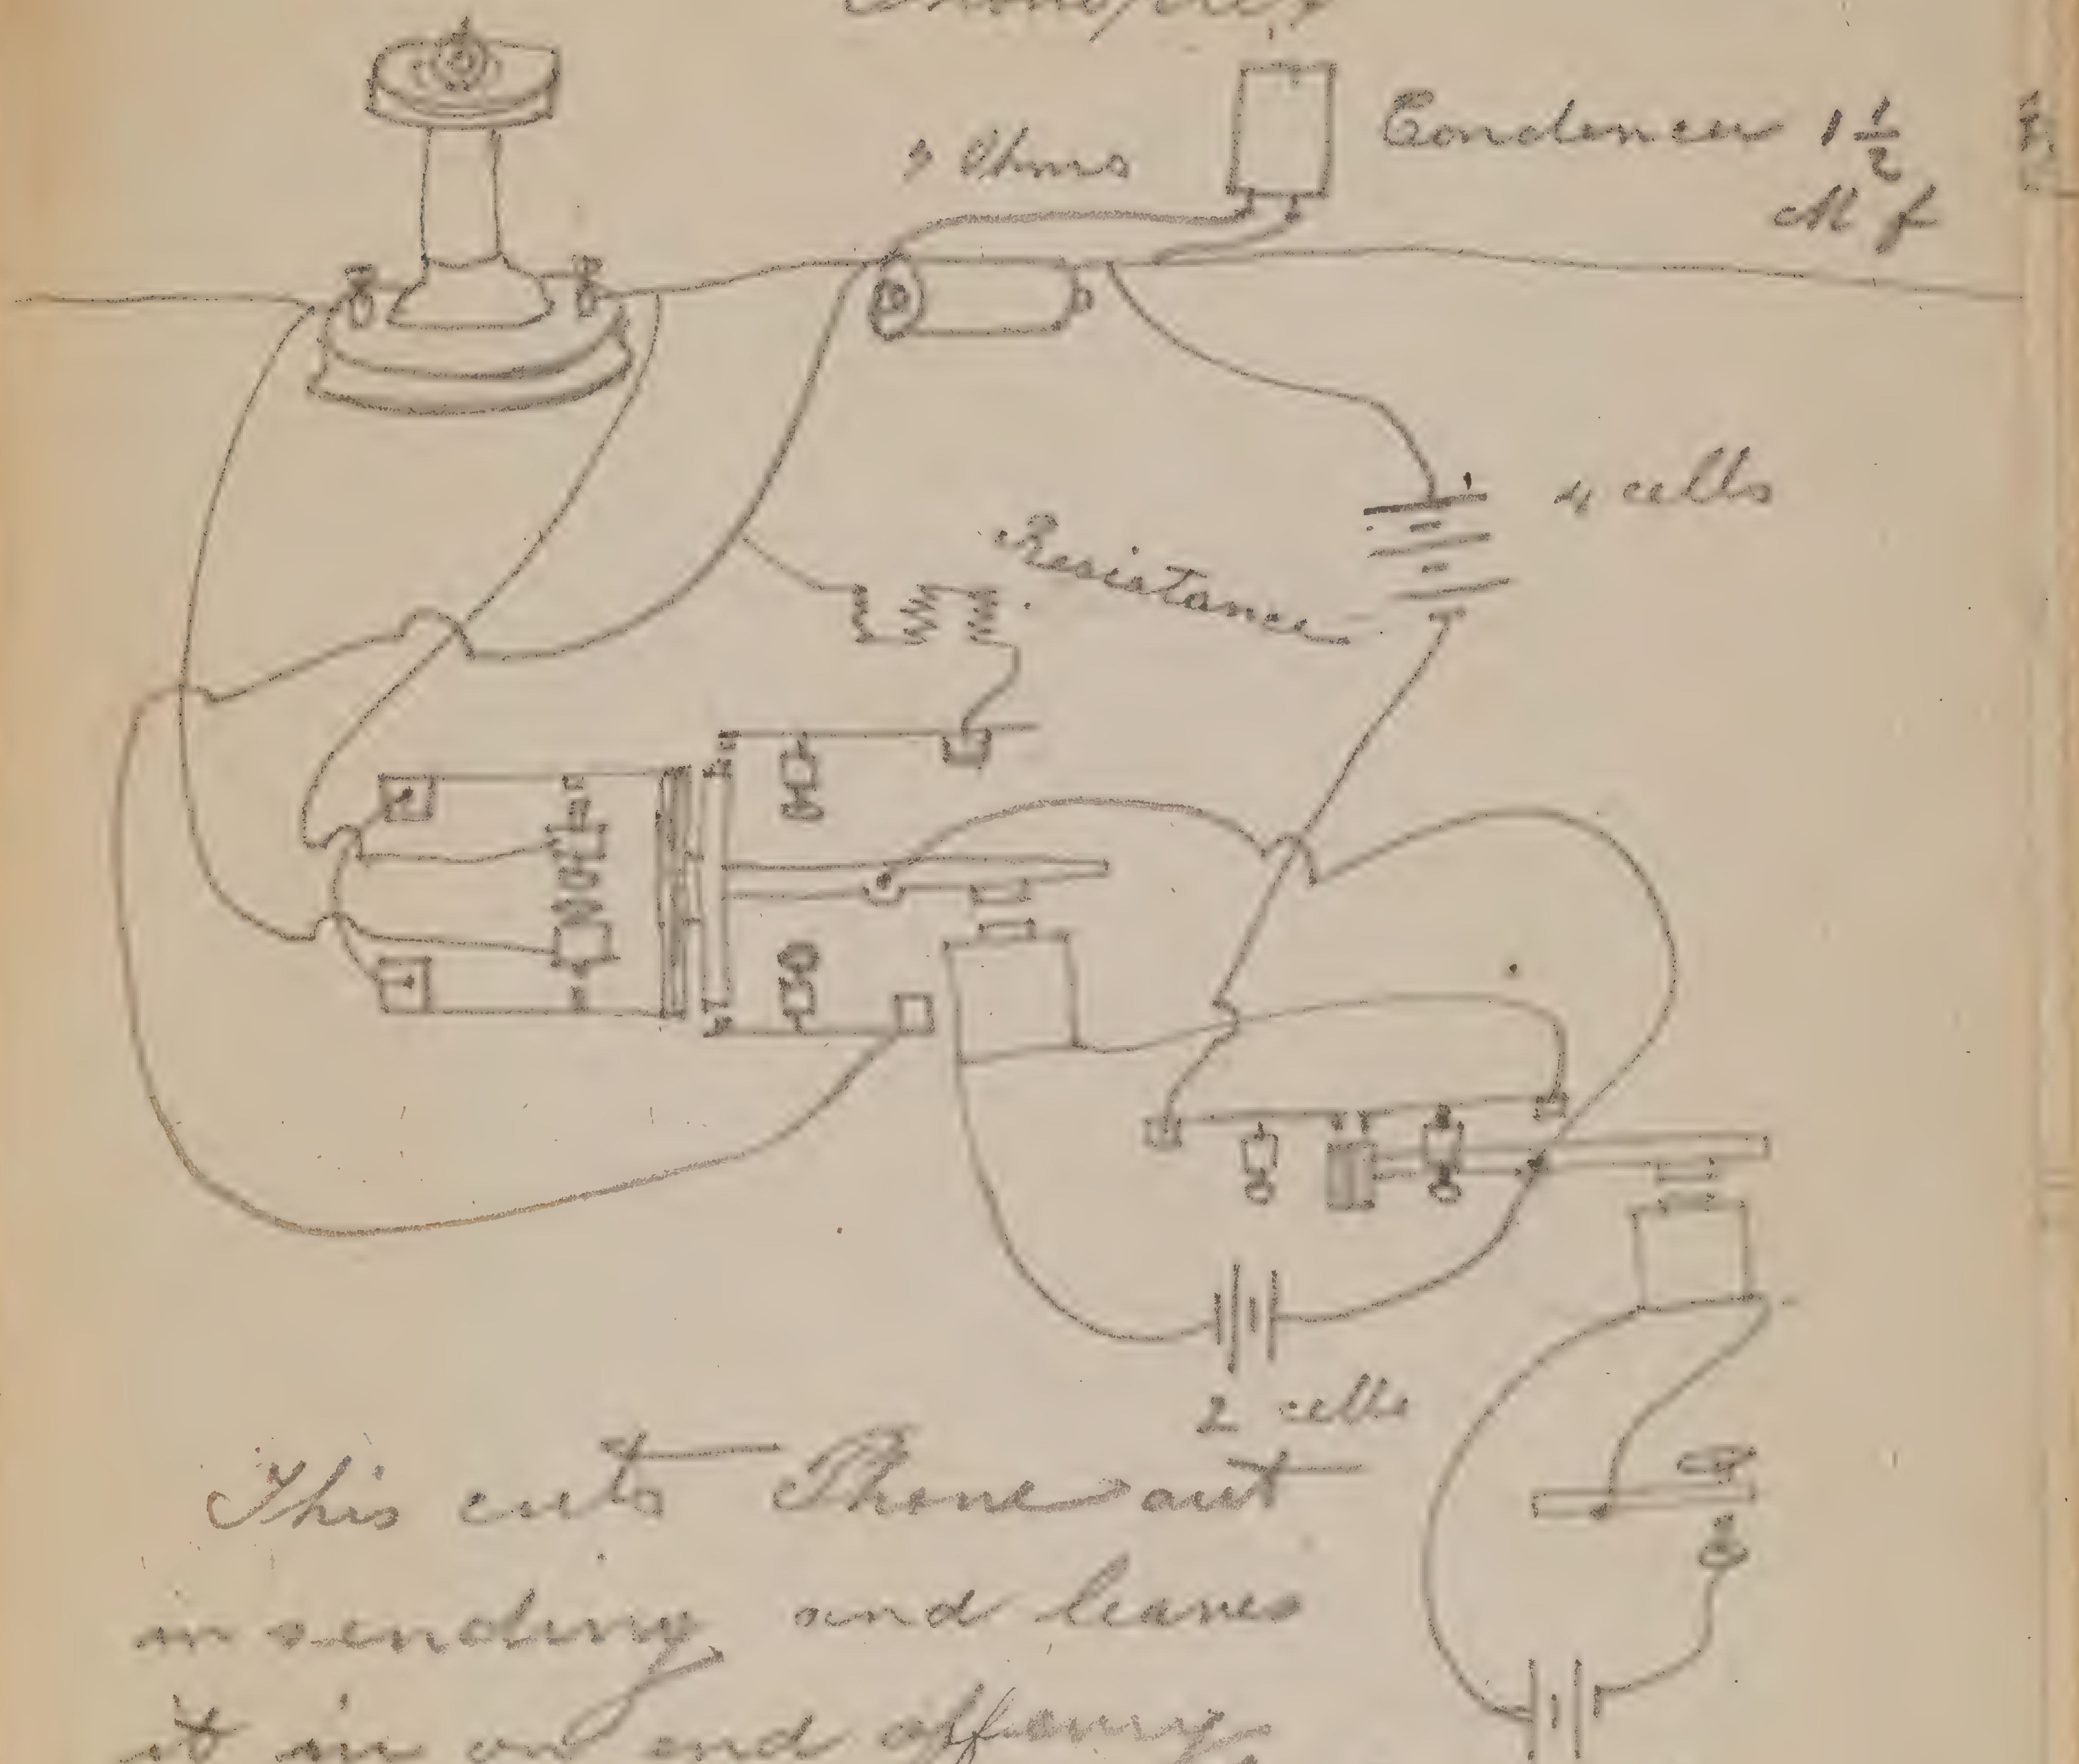 Phonoplex
4 Ohms
Condenser 1 1/2
M f
4 cells
Resistance
2 cells
This cuts Phone out
in sending and leaves
it in on end of